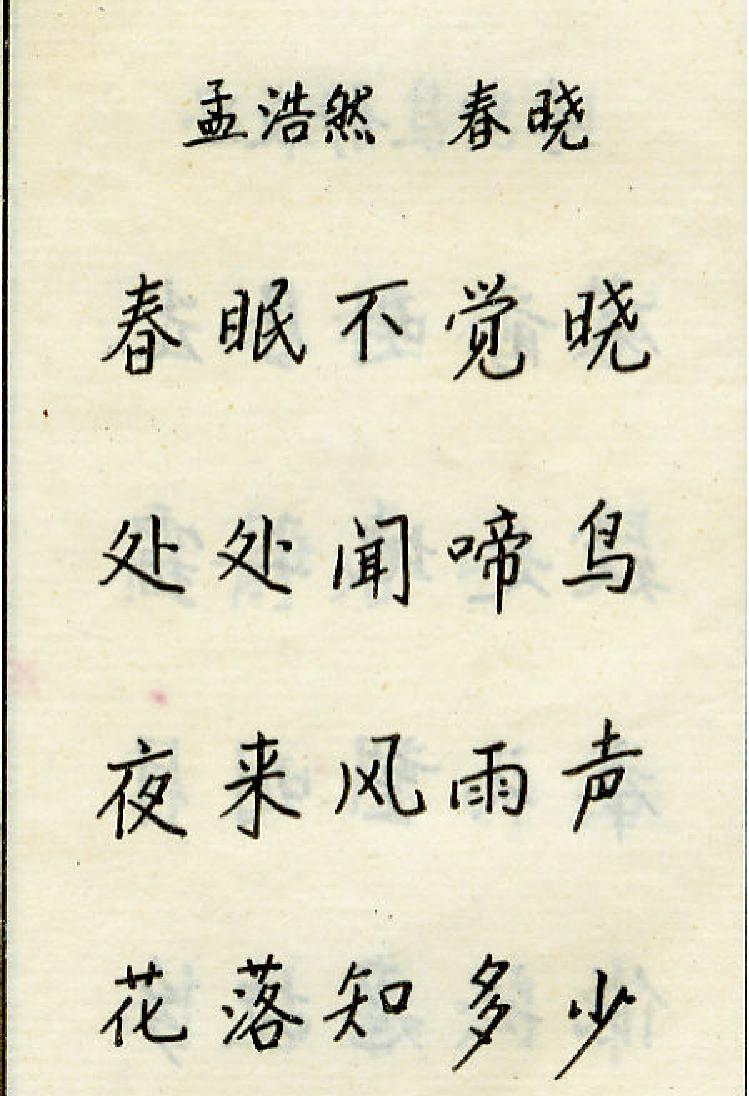 孟浩然 春晓
春眠不觉晓
处处闻啼鸟
夜来风雨声
花落知多少